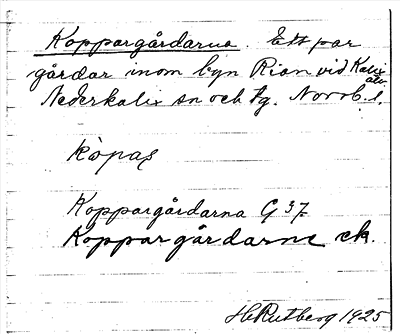 Koppargårdarna. Ett par
gårdar inom byn Rian vid Kalix
älv
Nederkalix sn och tg. Norrb. l.
kòpas
Koppargårdarna G 37
Koppargårdarne ek.
H Rutberg 1925